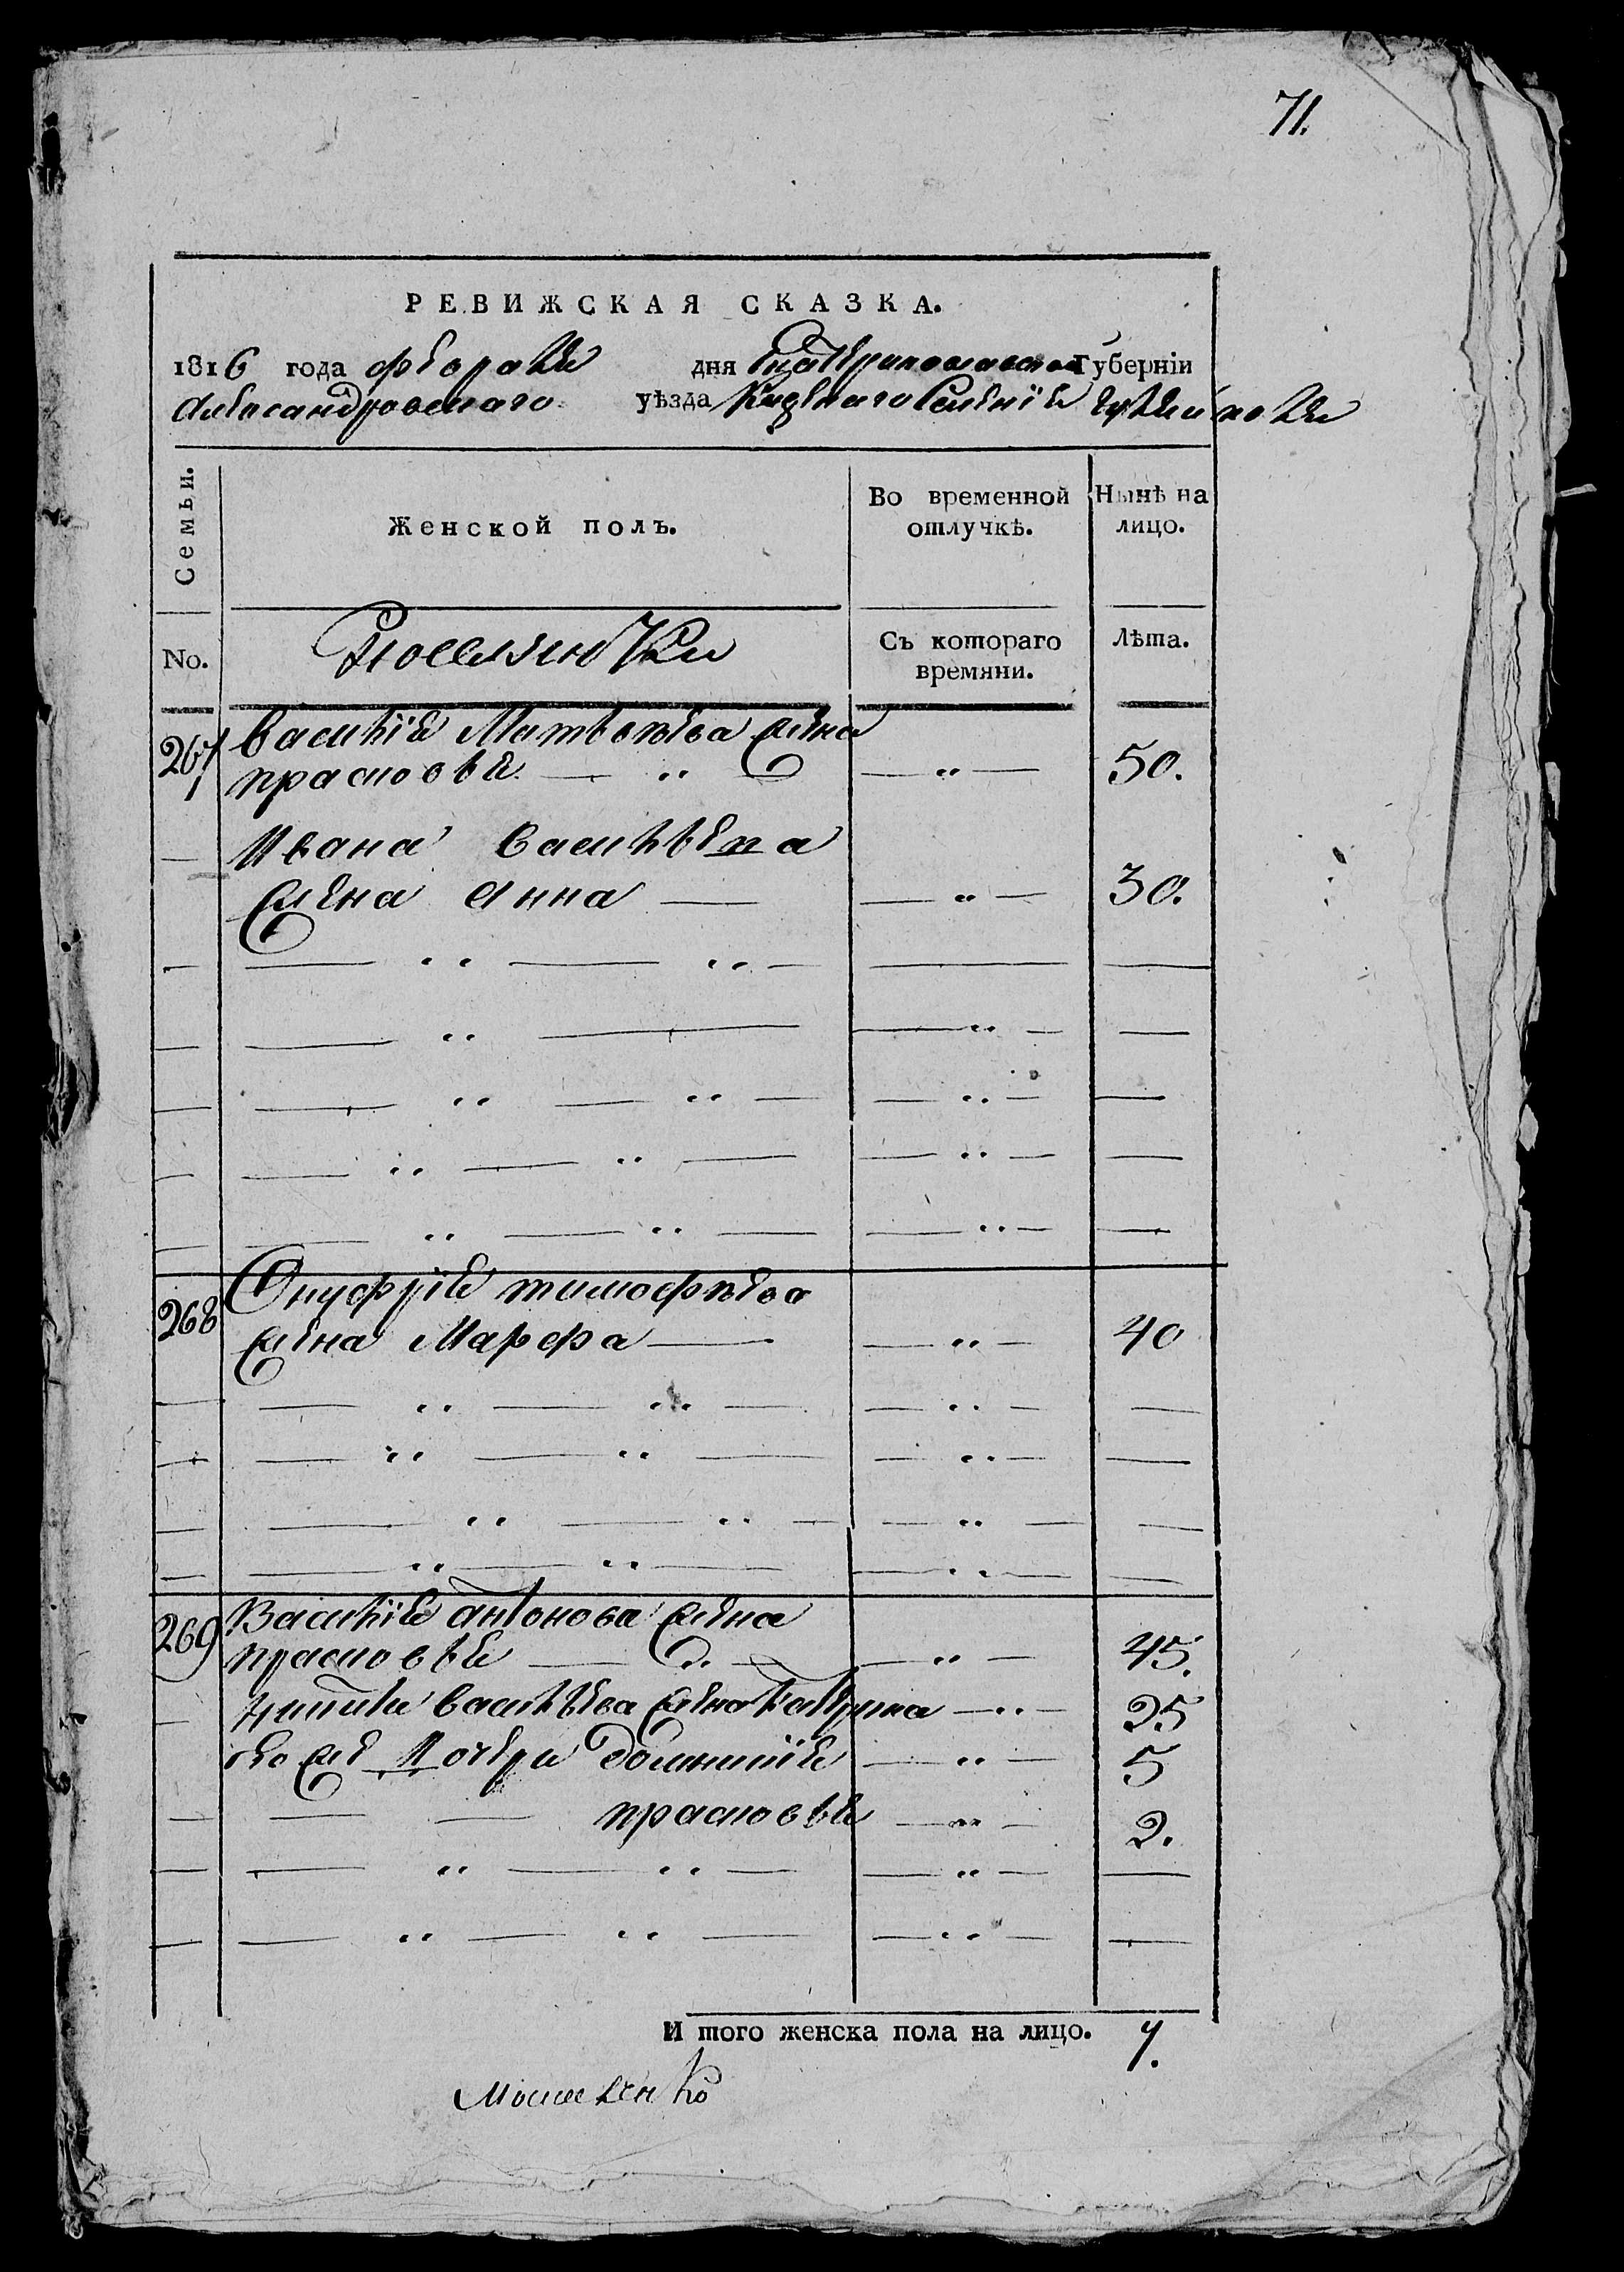 71.
РЕВИЖСКАЯ СКАЗКА.
1816 года февраля дня Екатеринославской губерніи
Александровскаго уѣзда Казенаго Селенія
Семьи.
Женской полъ.
Во временной отлучкѣ.
Нынѣ на лицо.
No.
Поселянки
Съ котораго времяни.
Лѣта.
267 Василія Матвѣева жена
Прасковья — „ — „ — 50.
Ивана Васильева
жена Анна — — „ — 30.
268 Онуфрія Тимофѣева
жена Марфа — — „ — 40
269 Василія Антонова жена
Прасковья — „ — — „ — 45.
Никиты Васильева жена Катерина — „ — 25
его же дочери Домникія — „ — 5
Прасковья — „ — 2.
И того женска пола на лицо. 7.